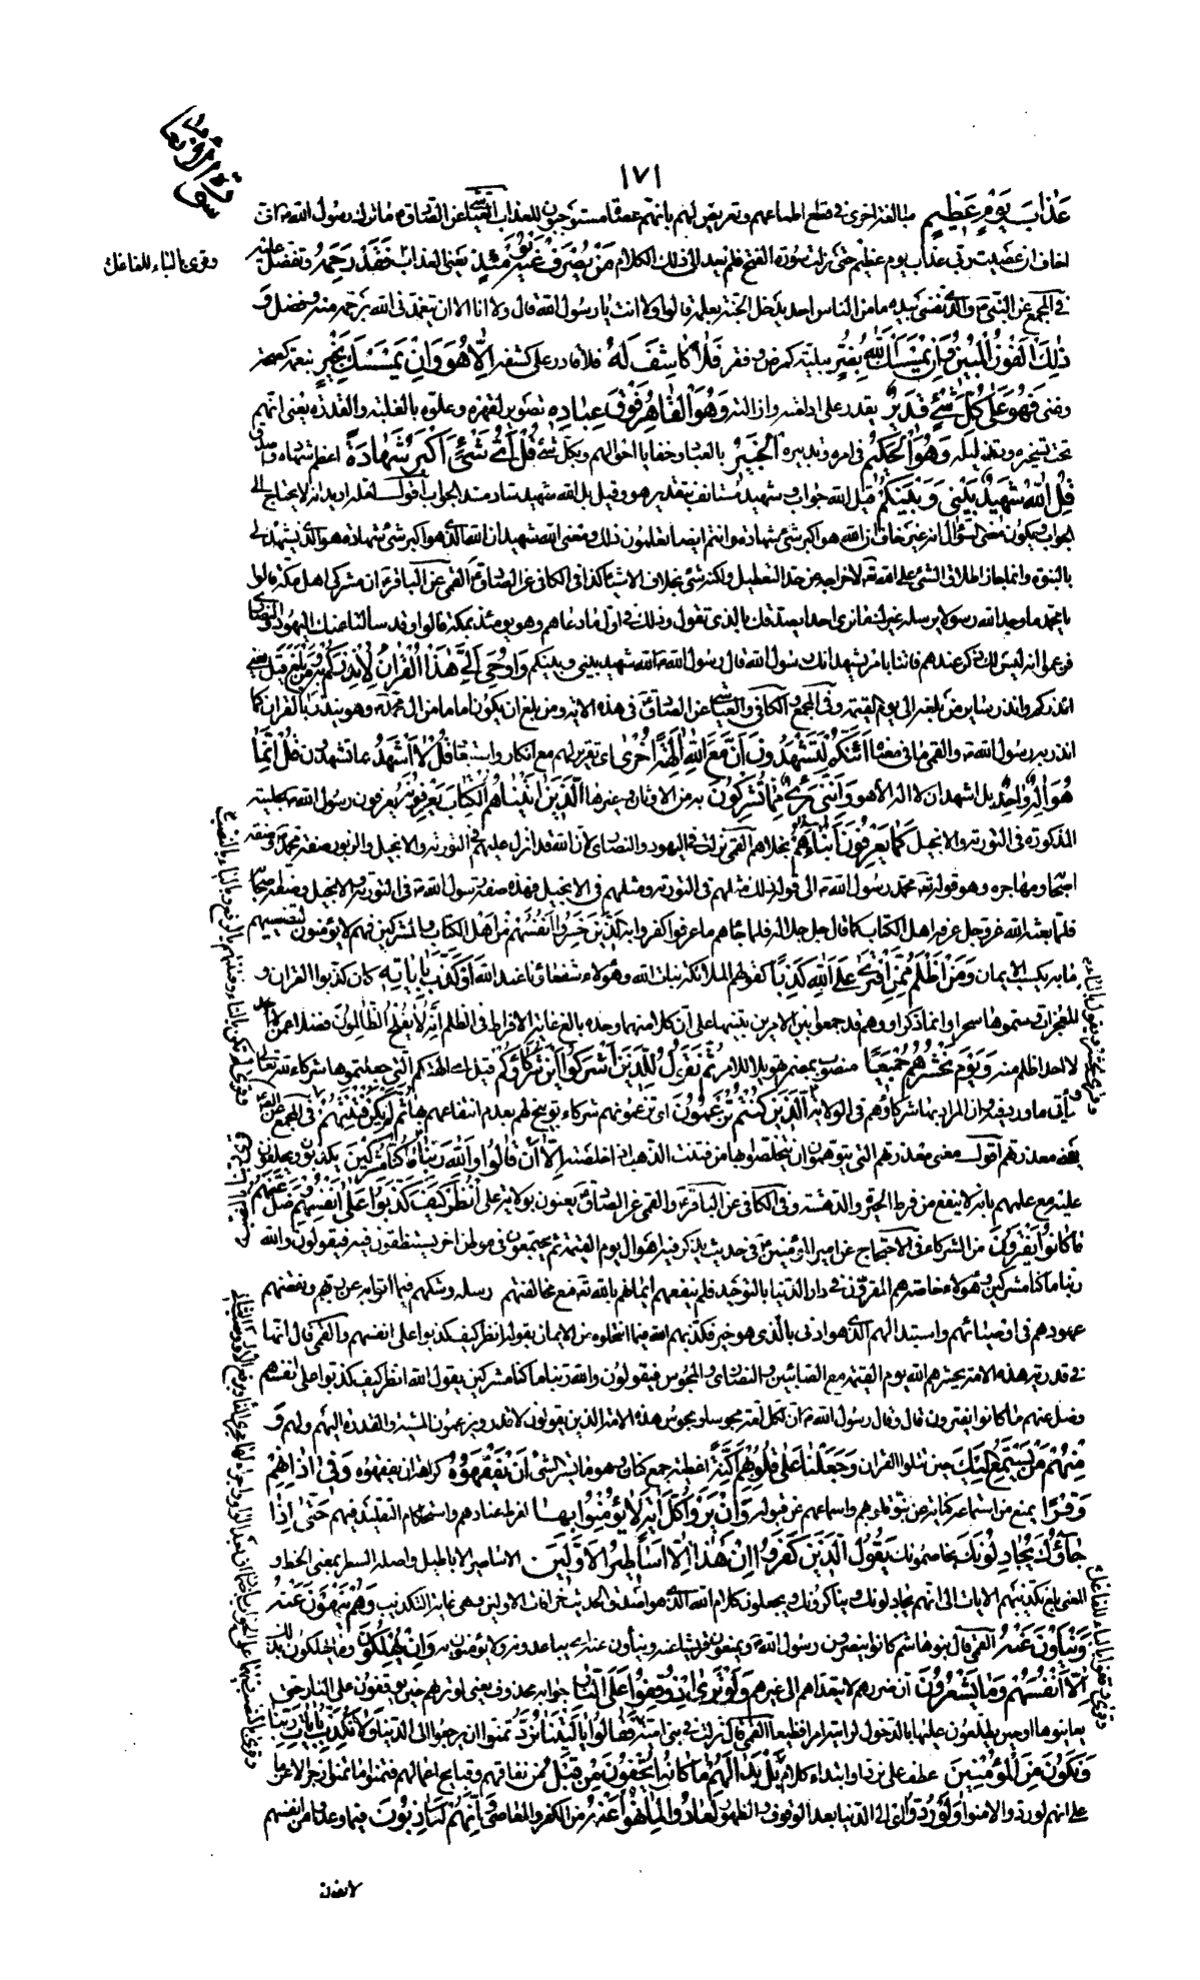 ١٧١
سورة الانعام
عَذٰابَ يَوْمٍ عَظِيمٍ مبالغة اخرى في قطع اطماعهم وتعريض لهم بانهم عصاة مستوجبون للعذاب العياشي عن الصادق ما ترك رسول الله انى
اخاف ان عصيت ربي عذاب يوم عظيم حتى نزلت سورة الفتح فلم يعد الى ذلك الكلام مَنْ يُصْرَفْ عَنْهُ يَوْمَئِذٍ يعنى العذاب فَقَدْ رَحِمَهُ وتفضل عليه
وقرئ بالبناء للفاعل
في المجمع عن النبي والذي نفسي بيده ما من الناس احد يدخل الجنة بعمله قالوا ولا انت يا رسول الله قال ولا انا الا ان يتغمدني الله برحمة منه وفضل وَ
ذٰلِكَ الْفَوْزُ الْمُبِينُ وَإِنْ يَمْسَسْكَ اللّٰهُ بِضُرٍّ ببلية كمرض وفقر فَلٰا كٰاشِفَ لَهُ فلا قادر على كشفه إِلّٰا هُوَ وَإِنْ يَمْسَسْكَ بِخَيْرٍ بنعمة كصحة
وغنى فَهُوَ عَلىٰ كُلِّ شَيْءٍ قَدِيرٌ يقدر على ادامته وازالته وَهُوَ الْقٰاهِرُ فَوْقَ عِبٰادِهِ تصوير لقهره وعلوه بالغلبة والقدرة يعنى انهم
تحت تسخيره وتذليله وَهُوَ الْحَكِيمُ في امره وتدبيره الْخَبِيرُ بالعباد وخفايا احوالهم وبكل شئ قُلْ أَيُّ شَيْءٍ أَكْبَرُ شَهٰادَةً اعظم شهادة واصدق
قُلِ اللّٰهُ شَهِيدٌ بَيْنِي وَبَيْنَكُمْ قيل الله جواب وشهيد مستأنف بتقدير هو وقيل بل الله شهيد سادّ مسدّ الجواب اقول لعله اريد انه لا يحتاج الى
جواب فيكون معنى السؤال انه غير خاف ان الله هو اكبر شئ شهادة وانتم ايضا تعلمون ذلك ومعنى الله شهيد ان الله الذي هو اكبر شئ شهادة هو الذي يشهد لي
بالنبوة وانما جاز اطلاق الشئ على الله تعالى لاخراجه من حد التعطيل ولكنه شئ بخلاف الاشياء كذا في الكافي عن الصادق القمي عن الباقر ان مشركي اهل مكة قالوا
يا محمد ما وجد الله رسولا يرسله غيرك ما نرى احدا يصدقك بالذي تقول وذلك في اول ما دعاهم وهو يومئذ بمكة قالوا وقد سألنا عنك اليهود والنصارى
فزعموا انه ليس لك ذكر عندهم فأتنا بامر يشهد انك رسول الله قال رسول الله الله شهيد بيني وبينكم وَأُوحِيَ إِلَيَّ هٰذَا الْقُرْآنُ لِأُنْذِرَكُمْ بِهِ وَمَنْ بَلَغَ قيل يعنى
انذركم وانذر سائر من بلغه الى يوم القيمة وفي المجمع والكافي والعياشي عن الصادق في هذه الآية ومن بلغ ان يكون اماما من ال محمد فهو ينذر بالقران كما
انذر به رسول الله والقمي ما في معناه أَئِنَّكُمْ لَتَشْهَدُونَ أَنَّ مَعَ اللّٰهِ آلِهَةً أُخْرىٰ تقرير لهم مع انكار واستبعاد قُلْ لٰا أَشْهَدُ بما تشهدون قُلْ إِنَّمٰا
هُوَ إِلٰهٌ وٰاحِدٌ بل اشهد ان لا اله الا هو وَإِنَّنِي بَرِيءٌ مِمّٰا تُشْرِكُونَ به من الاوثان وغيرها الَّذِينَ آتَيْنٰاهُمُ الْكِتٰابَ يَعْرِفُونَهُ يعرفون رسول الله بحليته
المذكورة في التورية والانجيل كَمٰا يَعْرِفُونَ أَبْنٰاءَهُمُ بحلاهم القمي نزلت في اليهود والنصارى لان الله قد انزل عليهم في التورية والانجيل والزبور صفة محمد وصفة
اصحابه ومهاجره وهو قوله تعالى محمد رسول الله الى قوله ذلك مثلهم في التورية ومثلهم في الانجيل فهذه صفة رسول الله في التورية والانجيل وصفة اصحابه
فلما بعثه الله عز وجل عرفه اهل الكتاب كما قال جل جلاله فلما جاءهم ما عرفوا كفروا به الَّذِينَ خَسِرُوا أَنْفُسَهُمْ من اهل الكتاب والمشركين فهم لا يؤمنون لتضييعهم
ما به يكسب الايمان وَمَنْ أَظْلَمُ مِمَّنِ افْتَرىٰ عَلَى اللّٰهِ كَذِباً كقولهم الملائكة بنات الله وهؤلاء شفعاؤنا عند الله أَوْ كَذَّبَ بِآيٰاتِهِ كأن كذبوا القران و
المعجزات وسموها سحرا وانما ذكر او وهم قد جمعوا بين الامرين تنبيها على ان كلا منهما وحده بالغ غاية الافراط في الظلم إِنَّهُ لٰا يُفْلِحُ الظّٰالِمُونَ فضلا عمن
لا احد اظلم منه وَيَوْمَ نَحْشُرُهُمْ جَمِيعاً منصوب بمضمر تهويلا للامر ثُمَّ نَقُولُ لِلَّذِينَ أَشْرَكُوا أَيْنَ شُرَكٰاؤُكُمُ قيل اى الهتكم التي جعلتموها شركاء لله تعالى
ويأتي ما ورد ان المراد بها شركاؤهم في الولاية الَّذِينَ كُنْتُمْ تَزْعُمُونَ اى تزعمونهم شركاء توبيخ لهم بعدم انتفاعهم بها ثُمَّ لَمْ تَكُنْ فِتْنَتُهُمْ في المجمع عن الصادق
يعني معذرتهم اقول معنى معذرتهم التي يتوهمون ان يتخلصوا بها من فتنت الذهب اذا خلصته إِلّٰا أَنْ قٰالُوا وَاللّٰهِ رَبِّنٰا مٰا كُنّٰا مُشْرِكِينَ يكذبون ويحلفون
عليه مع علمهم بانه لا ينفع من فرط الحيرة والدهشة وفي الكافي عن الباقر والقمي عن الصادق يعنون بولاية على انْظُرْ كَيْفَ كَذَبُوا عَلىٰ أَنْفُسِهِمْ وَضَلَّ عَنْهُمْ
مٰا كٰانُوا يَفْتَرُونَ من الشركاء في الاحتجاج عن امير المؤمنين في حديث يذكر فيه اهوال يوم القيمة ثم يجتمعون في موطن اخر يستنطقون فيه فيقولون والله
ربنا ما كنا مشركين وهؤلاء خاصة هم المقرون في دار الدنيا بالتوحيد فلم ينفعهم ايمانهم بالله تعالى مع مخالفتهم رسله وشكهم فيما اتوا به عن ربهم ونقضهم
عهودهم في اوصيائهم واستبدالهم الذي هو ادنى بالذي هو خير فكذبهم الله فيما انتحلوه من الايمان بقوله انظر كيف كذبوا على انفسهم والقمي قال انها
في قدرية هذه الامة يحشرهم الله يوم القيمة مع الصابئين والنصارى والمجوس فيقولون والله ربنا ما كنا مشركين يقول الله انظر كيف كذبوا على انفسهم
وضل عنهم ما كانوا يفترون قال وقال رسول الله ان لكل امة مجوسا ومجوس هذه الامة الذين يقولون لا قدر ويزعمون المشية والقدرة اليهم ولهم وَ
مِنْهُمْ مَنْ يَسْتَمِعُ إِلَيْكَ حين تتلوا القران وَجَعَلْنٰا عَلىٰ قُلُوبِهِمْ أَكِنَّةً اغطية جمع كنان وهو ما يستر الشئ أَنْ يَفْقَهُوهُ كراهة ان يفقهوه وَفِي آذٰانِهِمْ
وَقْراً يمنع من استماعه كناية عن نبو قلوبهم واسماعهم عن قبوله وَإِنْ يَرَوْا كُلَّ آيَةٍ لٰا يُؤْمِنُوا بِهٰا لفرط عنادهم واستحكام التقليد فيهم حَتّٰى إِذٰا
جٰاؤُكَ يُجٰادِلُونَكَ يخاصمونك يَقُولُ الَّذِينَ كَفَرُوا إِنْ هٰذٰا إِلّٰا أَسٰاطِيرُ الْأَوَّلِينَ الاساطير الاباطيل واصله السطر بمعنى الخط و
المعنى بلغ تكذيبهم الايات الى انهم يجادلونك ويناكرونك ويجعلون كلام الله الذي هو اصدق الحديث خرافات الاولين وهي غاية التكذيب وَهُمْ يَنْهَوْنَ عَنْهُ
وَيَنْأَوْنَ عَنْهُ القمي قال بنو هاشم كانوا ينصرون رسول الله ويمنعون قريشا عنه وينأون عنه اي يباعدونه ولا يؤمنون به وَإِنْ يُهْلِكُونَ وما يهلكون بذلك
إِلّٰا أَنْفُسَهُمْ وَمٰا يَشْعُرُونَ ان ضررهم لا يتعداهم الى غيرهم وَلَوْ تَرىٰ إِذْ وُقِفُوا عَلَى النّٰارِ جوابه محذوف يعنى لو تريهم حين يوقفون على النار حتى
يعاينوها او حين يطلعون عليها بالدخول لرايت امرا فظيعا القمي قال نزلت في بني امية فَقٰالُوا يٰا لَيْتَنٰا نُرَدُّ تمنوا ان يرجعوا الى الدنيا وَلٰا نُكَذِّبَ بِآيٰاتِ رَبِّنٰا
وَنَكُونَ مِنَ الْمُؤْمِنِينَ عطف على نرد او ابتداء كلام بَلْ بَدٰا لَهُمْ مٰا كٰانُوا يُخْفُونَ مِنْ قَبْلُ من نفاقهم وقبايح اعمالهم فتمنوا ما تمنوا ضجرا لا عزما
على انهم لو ردوا لامنوا وَلَوْ رُدُّوا اى الى الدنيا بعد الوقوف والظهور لَعٰادُوا لِمٰا نُهُوا عَنْهُ من الكفر والمعاصي وَإِنَّهُمْ لَكٰاذِبُونَ فيما وعدوا من انفسهم
وقرئ يحشرهم ويقول بالياء
وقرئ لم تكن بالتاء وفتنتهم بالرفع وبالياء والنصب